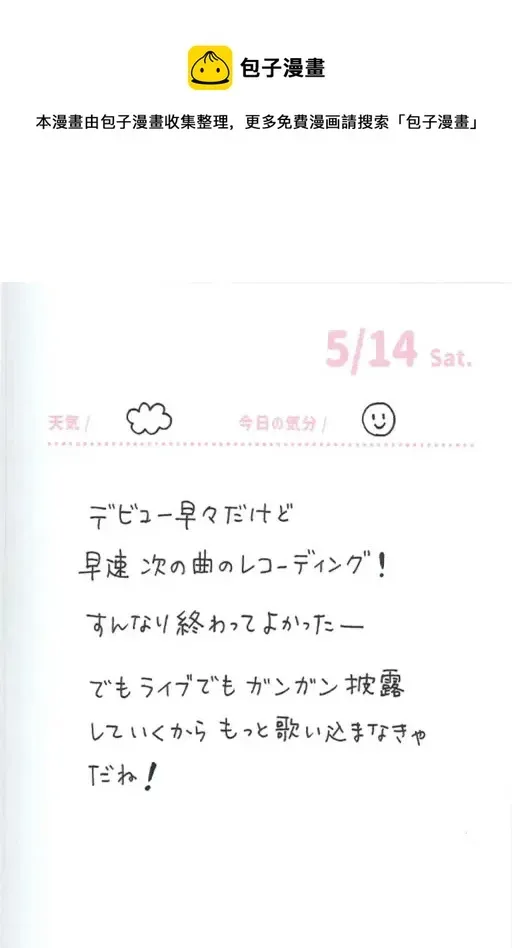 包子漫畫
本漫畫由包子漫畫收集整理，更多免費漫画請搜索「包子漫畫」
5/14 Sat.
天気/ 今日の気分/
デビュー早々だけど
早速 次の曲のレコーディング！
すんなり終わってよかったー
でもライブでもガンガン披露
していくから もっと歌い込まなきゃ
だね！